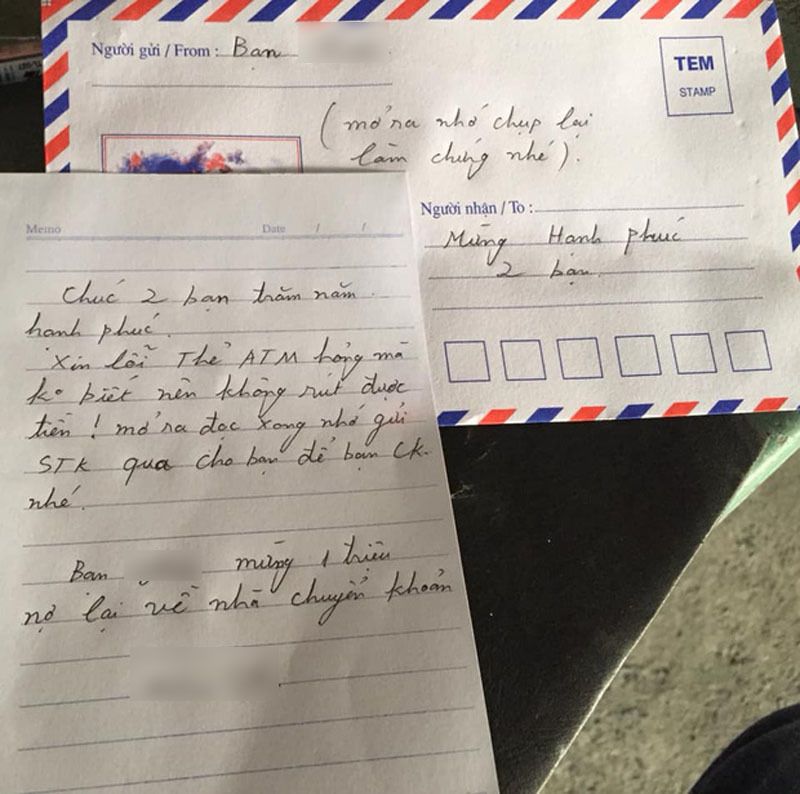 Người gửi / From : Bạn
TEM
STAMP
(mở ra nhớ chụp lại
làm chứng nhé).
Người nhận / To :
Mừng Hạnh phúc
2 bạn.
Memo Date / /
Chúc 2 bạn trăm năm
hạnh phúc.
Xin lỗi Thẻ ATM hỏng mà
ko biết nên không rút được
tiền ! mở ra đọc xong nhớ gửi
STK qua cho bạn để bạn CK.
nhé.
Bạn mừng 1 triệu
nợ lại về nhà chuyển khoản